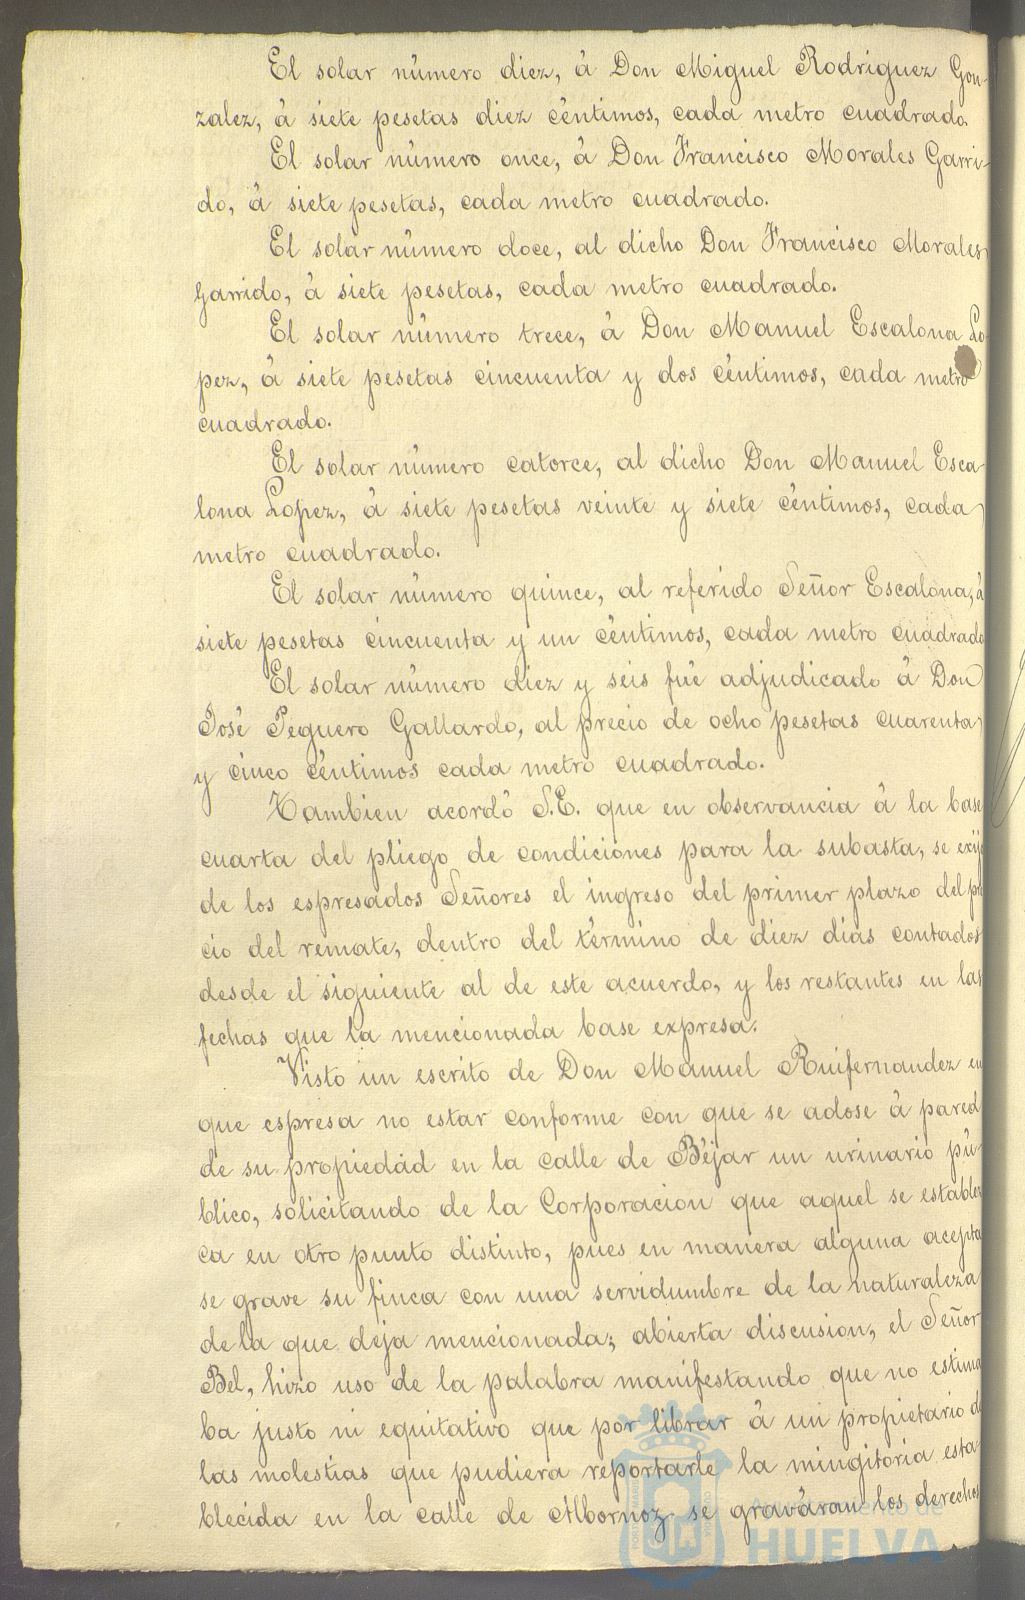 El solar número diez, á Don Miguel Rodriguez Gon-
zalez, á siete pesetas diez céntimos, cada metro cuadrado.
El solar número once, á Don Francisco Morales Garri-
do, á siete pesetas, cada metro cuadrado.
El solar número doce, al dicho Don Francisco Morales
Garrido, á siete pesetas, cada metro cuadrado.
El solar número trece, á Don Manuel Escalona Lo-
pez, á siete pesetas cincuenta y dos céntimos, cada metro
cuadrado.
El solar número catorce, al dicho Don Manuel Esca-
lona Lopez, á siete pesetas veinte y siete céntimos, cada
metro cuadrado.
El solar número quince, al referido Señor Escalona, á
siete pesetas cincuenta y un céntimos, cada metro cuadrado
El solar número diez y seis fué adjudicado á Don
José Peguero Gallardo, al precio de ocho pesetas cuarenta
y cinco céntimos cada metro cuadrado.
Tambien acordó S.E. que en observancia á la base
cuarta del pliego de condiciones para la subasta, se exija
de los espresados Señores el ingreso del primer plazo del pre
cio del remate, dentro del término de diez dias contados
desde el siguiente al de este acuerdo, y los restantes en las
fechas que la mencionada base expresa.
Visto un escrito de Don Manuel Ruifernandez en
que espresa no estar conforme con que se adose á pared
de su propiedad en la calle de Béjar un urinario pú-
blico, solicitando de la Corporacion que aquel se establez
ca en otro punto distinto, pues en manera alguna acepta
se grave su finca con una servidumbre de la naturaleza
de la que deja mencionada; abierta discusion, el Señor
Bel, hizo uso de la palabra manifestando que no estima
ba justo ni equitativo que por librar á un propietario de
las molestias que pudiera reportarle la mingitoria esta
blecida en la calle de Albornoz se graváran los derechos
Ayuntamiento de
HUELVA